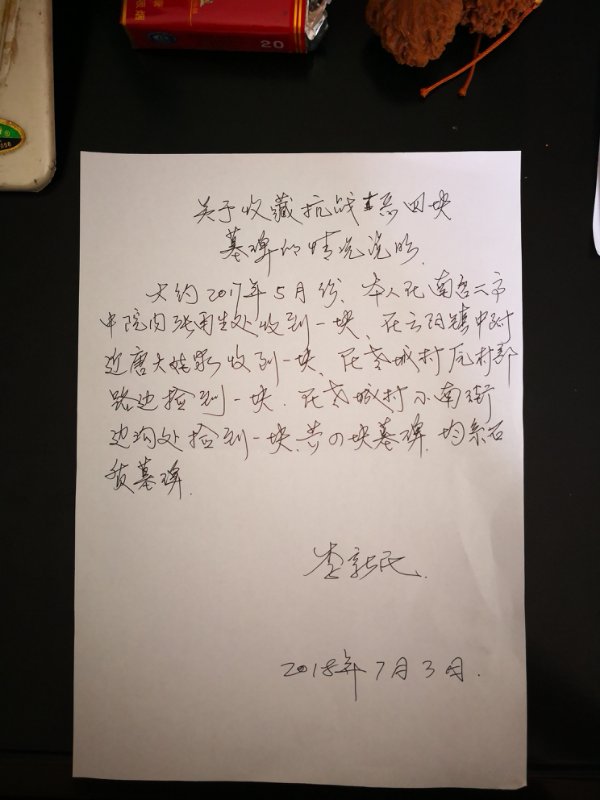 20
关于收藏抗战 四块
墓碑的情况说明
大约2017年5月份、本人在南召二市
中院内 处收到一块、在云阳镇中附
近唐大姓家收到一块、在老城村瓦村部
路边捡到一块、在老城村小南街
边沟处捡到一块、共4块墓碑、均系石
质墓碑.
李新民.
2018年7月3日.